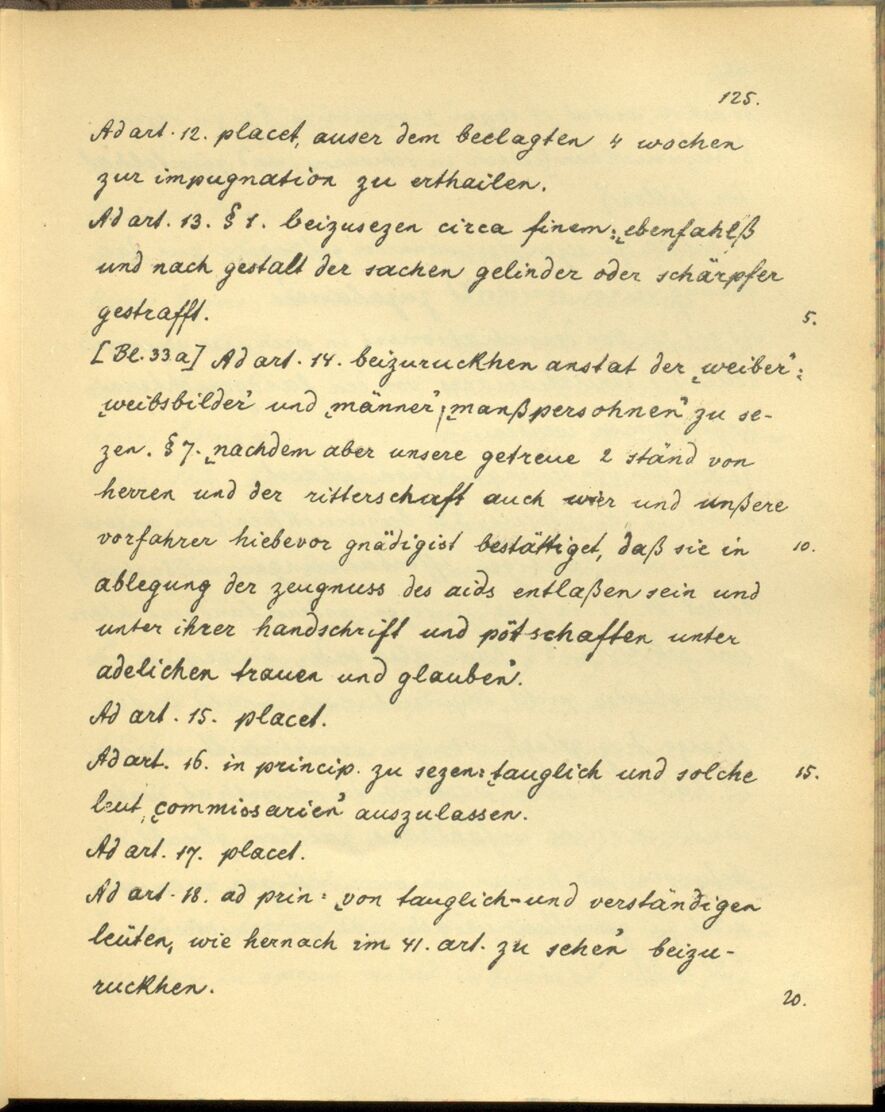 125.
Ad art. 12. placet, auser dem beelagten 4 wochen
zur impugnation zu erthailen.
Ad art. 13. § 1. beizusezen circa finem: „ebenfahlß
und nach gestalt der sachen gelinder oder schärpfer
gestrafft. 5.
[Bl. 33a] Ad art. 14. beizuruckhen anstat der „weiber“:
„weibsbilder“ und „männer“: „manßpersohnen“ zu se-
zen. § 7. „nachdem aber unsere getreue 2 ständ von
herren und der ritterschaft auch wier und unßere
vorfahrer hiebevor gnädigist bestättiget, daß sie in 10.
ablegung der zeugnuss des aids entlaßen sein und
unter ihrer handschrift und pötschaften unter
adelichen trauen und glauben“.
Ad art. 15. placet.
Ad art. 16. in princip. zu sezen: „tauglich und solche 15.
leut, „commissarien“ auszulassen.
Ad art. 17. placet.
Ad art. 18. ad prin: „von tauglich- und verständigen
leüten, wie hernach im 41. art. zu sehen“ beizu-
ruckhen. 20.